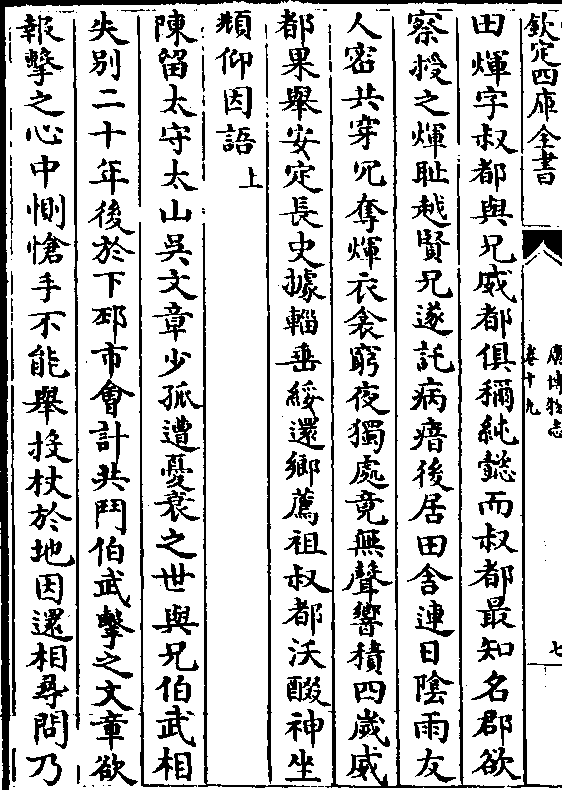 欽定四庫全書
廣博物志
卷十九
七
田煇字叔都與兄威都俱稱純懿而叔都最知名郡欲
察授之煇耻越賢兄遂託病瘖後居田舍連日陰雨友
人密共穿冗奪煇衣衾窮夜獨處竟無聲響積四歲威
都果舉安定長史據輜垂綬還鄉薦祖叔都沃醊神坐
頫仰因語上
陳留太守太山吳文章少孤遭憂衰之世與兄伯武相
失别二十年後於下邳市會計共鬥伯武擊之文章欲
報擊之心中惻愴手不能舉投杖於地因還相尋問乃